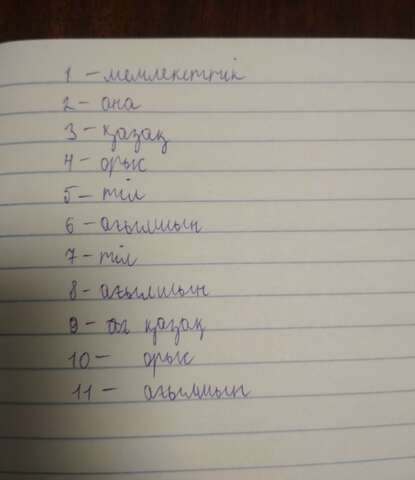 1 – мемлекеттік
2 – ана
3 – қазақ
4 – орыс
5 – тіл
6 – ағылшын
7 – тіл
8 – ағылшын
9 – қазақ
10 – орыс
11 – ағылшын